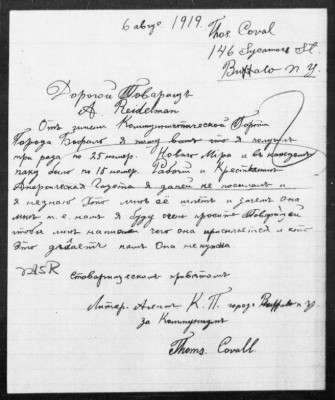 6 август 1919.
Thos. Coval
146 Sycamore St.
Buffalo N.Y.
Дорогой Товарищ
A. Reidelman
Отъ имени Коммунистической Партіи
Города Бофало я пишу вамъ что я
при рада по 25 номер. Новаго Мира и въ каждом
паку было по 15 номер. Рабоч и Крестьянин
Газета я далей не посилат и
я незнаю Хто мнѣ её и зачем она
мнѣ т.е. намъ я буду очень просить Товарищей
чтобы мнѣ чего она присилается и кто
Это дѣлаетъ намъ Она не нужна
Стоварищеским привѣтом
Литер. Агент К.П. города Buffalo N.Y.
за Коммунизм
Thoms. Covall.